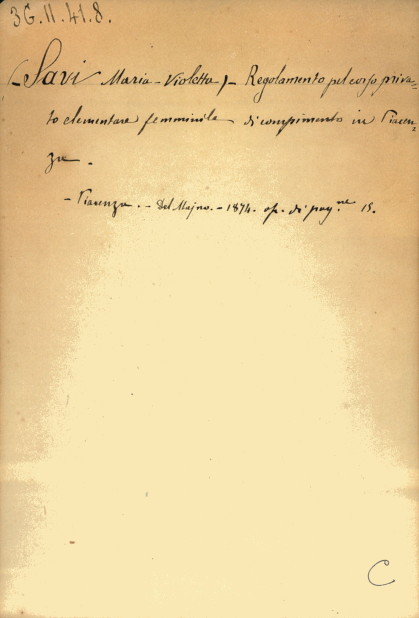 3G.II.41.8.
(Savi Maria-Violetta) - Regolamento pel corso priva-
to elementare femminile di compimento in Piacen-
za -
- Piacenza. - Del Majno. - 1874. op. di pag.ne 15.
C